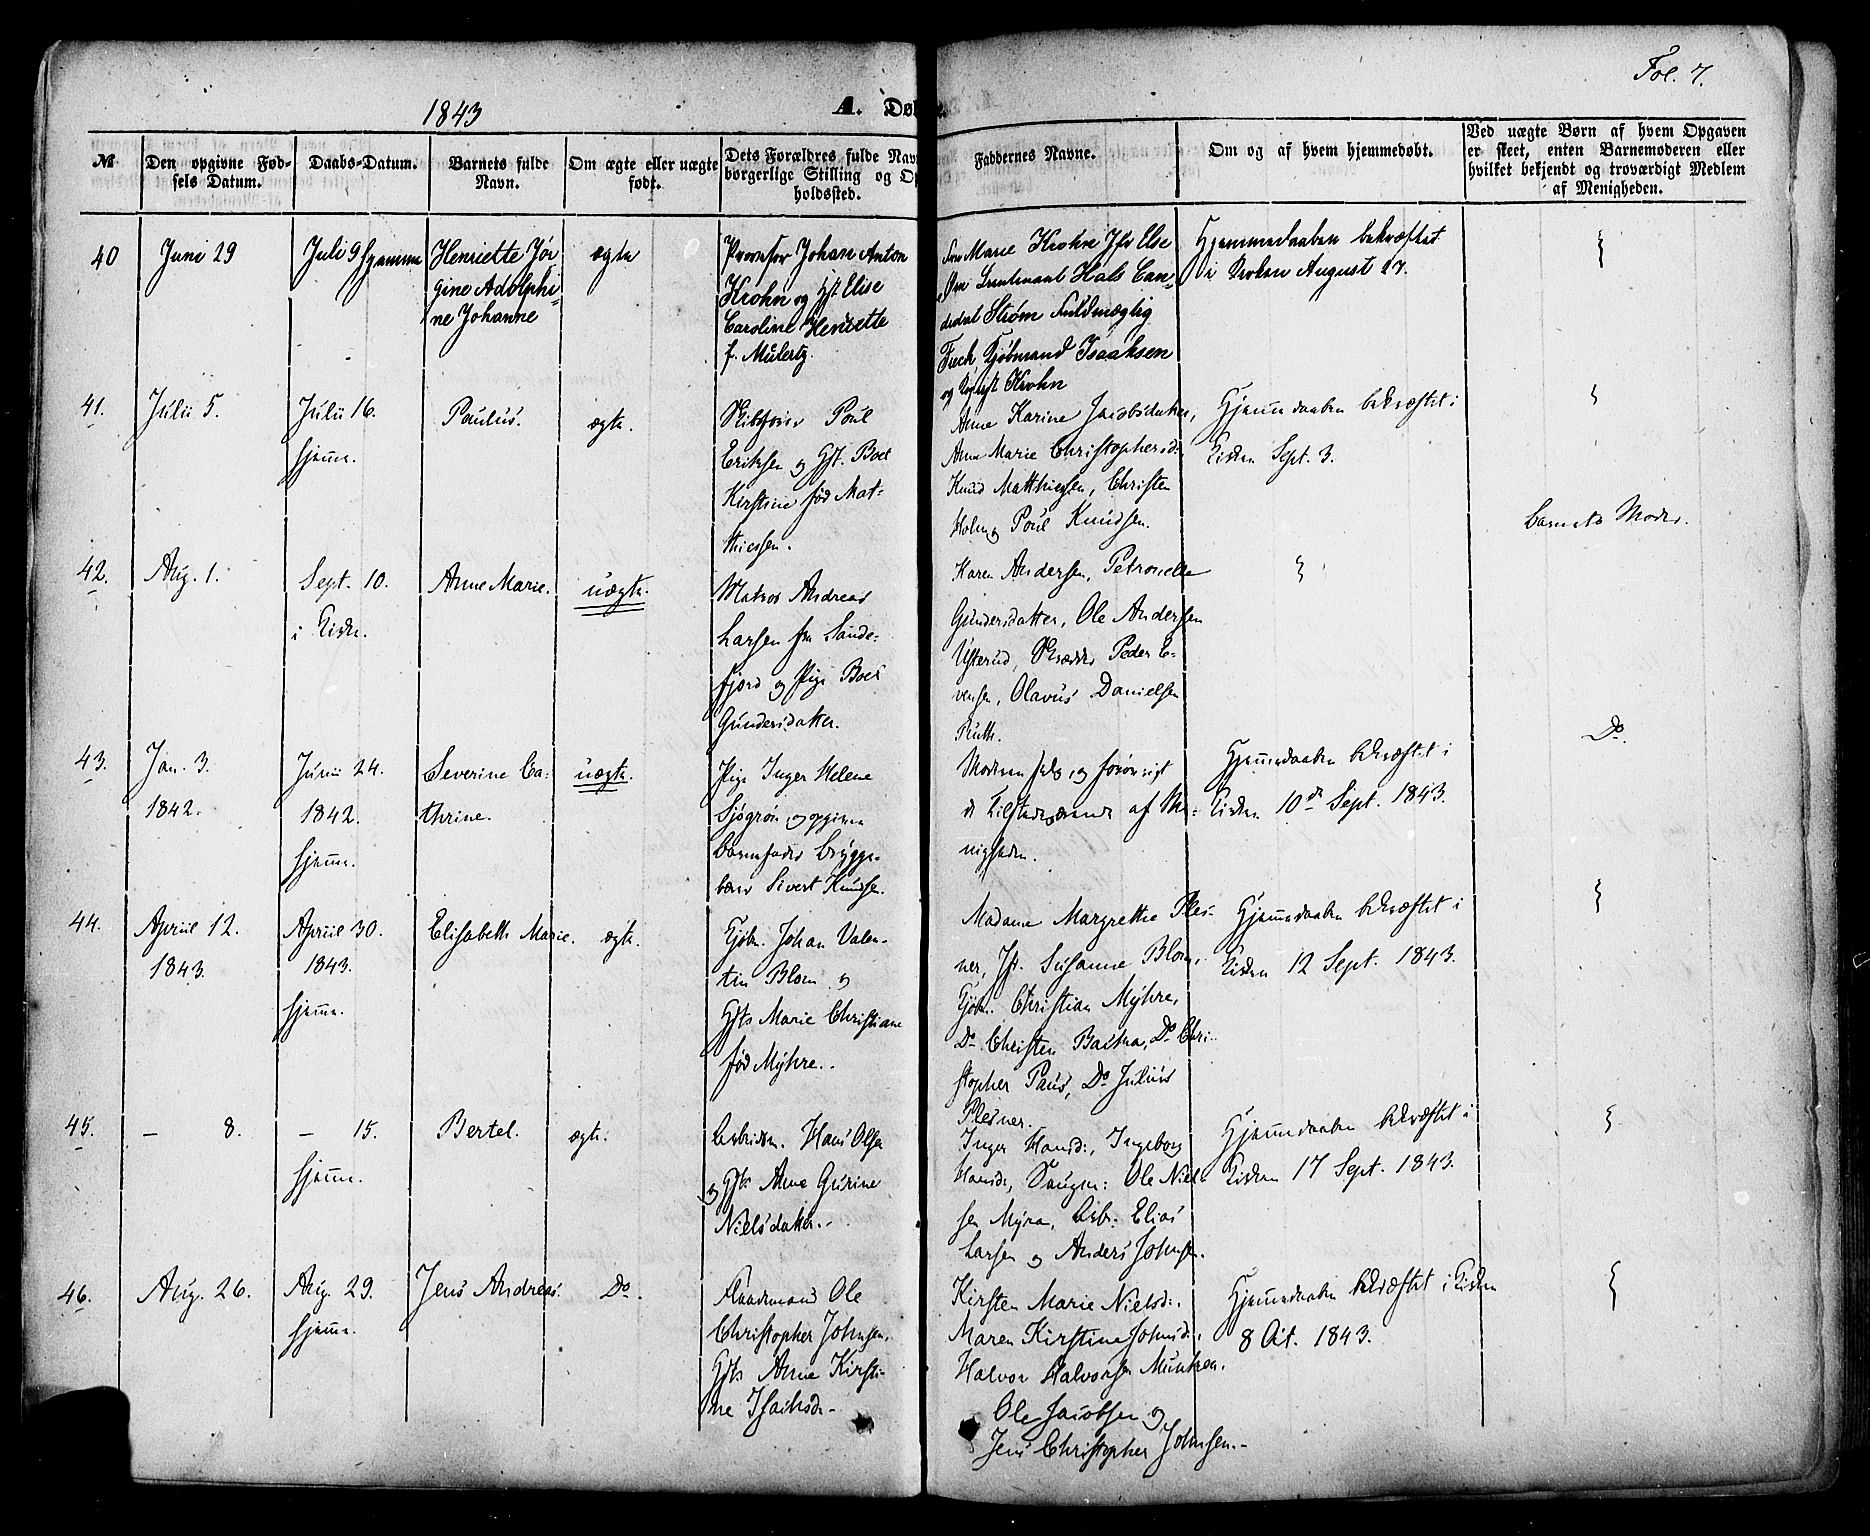 Fol. 7.
1843
A. Døb
№
Den opgivne Fød-
sels Datum.
Daabs-Datum.
Barnets fulde
Navn.
Om ægte eller uægte
født.
Dets Forældres fulde Navn
borgerlige Stilling og Op
holdssted.
Faddernes Navne.
Om og af hvem hjemmedøbt.
Ved uægte Børn af hvem Opgaven
er skeet, enten Barnemoderen eller
hvilket bekjendt og troværdigt Medlem
af Menigheden.
40
Juni 29
Juli 9 hjemme
Henriette Jør
gine Adolphi-
ne Johanne
ægte
Johan Anton
Krohn og Hst Elise
Caroline Henriette
f. Mulertz.
Marie Krohn Jfr Else
Lieutenant Hals Can-
didat Strøm Fuldmægtig
Kjøbmand Isaaksen
og Krohn
Hjemmedaaben bekræftet
i Kirken August 27.
41.
Julii 5.
Julii 16.
hjeme.
Paulus.
ægte.
Skibsfører Poul
Eriksen og Hst. Boel
Kirstine fød Mat-
thiessen.
Anne Karine Jacobsdatter,
Anne Marie Christophersd:
Knud Matthiesen, Christen
Holm og Poul Knudsen.
Hjemedaaben bekræftet i
Kirken Sept. 3.
42.
Aug. 1.
Sept. 10.
i Kirke.
Anne Marie.
uægte.
Matros Andreas
Larsen fra Sande-
fjord og Pige Boel
Gundersdatter.
Karen Andersen, Petronelle
Gundersdatter, Ole Andersen
Usterud, Skrædder Peder E-
vensen, Olavus Danielsen
Ruth.
Barnets Moder.
43.
Jan. 3.
1842.
Junii 24.
1842.
hjeme.
Severine Ca-
thrine.
uægte.
Pige Inger Helene
Sjøgrøn og opgiven
Barnefader Brygge-
Sivert Knudsen.
Moderen selv, og forøvrigt
de Tilstedeværende af Me-
nigheden.
Hjemedaaben bekræftet i
Kirken 10de Sept. 1843.
Do.
44.
Apriil 12.
1843.
Apriil 30.
1843.
hjeme.
Elisabeth Marie.
ægte.
Kjøbm. Johan Valen-
tin Blom og
Hst. Marie Christiane
fød Myhre.
Madame Margrethe Ples-
ner, Jfr. Susanne Blom,
Kjøbm. Christian Myhre,
Do Christen Backa, Do Chri-
stopher Paus, Do Julius
Plesner.
Hjemedaaben bekræftet i
Kirken 12 Sept. 1843.
45.
– 8.
– 15.
hjeme.
Bertel.
ægte.
Arbeidsm. Hans Olsen
og Hst. Anne Gurine
Nielsdatter.
Inger Hansd:, Ingeborg
Hansd:, Ole Niel-
sen Myra, Arb: Elias
Larsen og Anders Johnsen.
Hjemedaaben bekræftet i
Kirken 17 Sept. 1843.
46.
Aug. 26.
Aug. 29.
hjeme.
Jens Andreas.
Do.
Ole
Christopher Johnsen,
Hst. Anne Kirsti-
ne Isachsd.
Kirsten Marie Nielsd:,
Maren Kirstine Johnsd:,
Halvor Halvorsen
Ole Jacobsen og
Jens Christopher Johnsen.
Hjemedaaben bekræftet i Kirken
8 Oct. 1843.